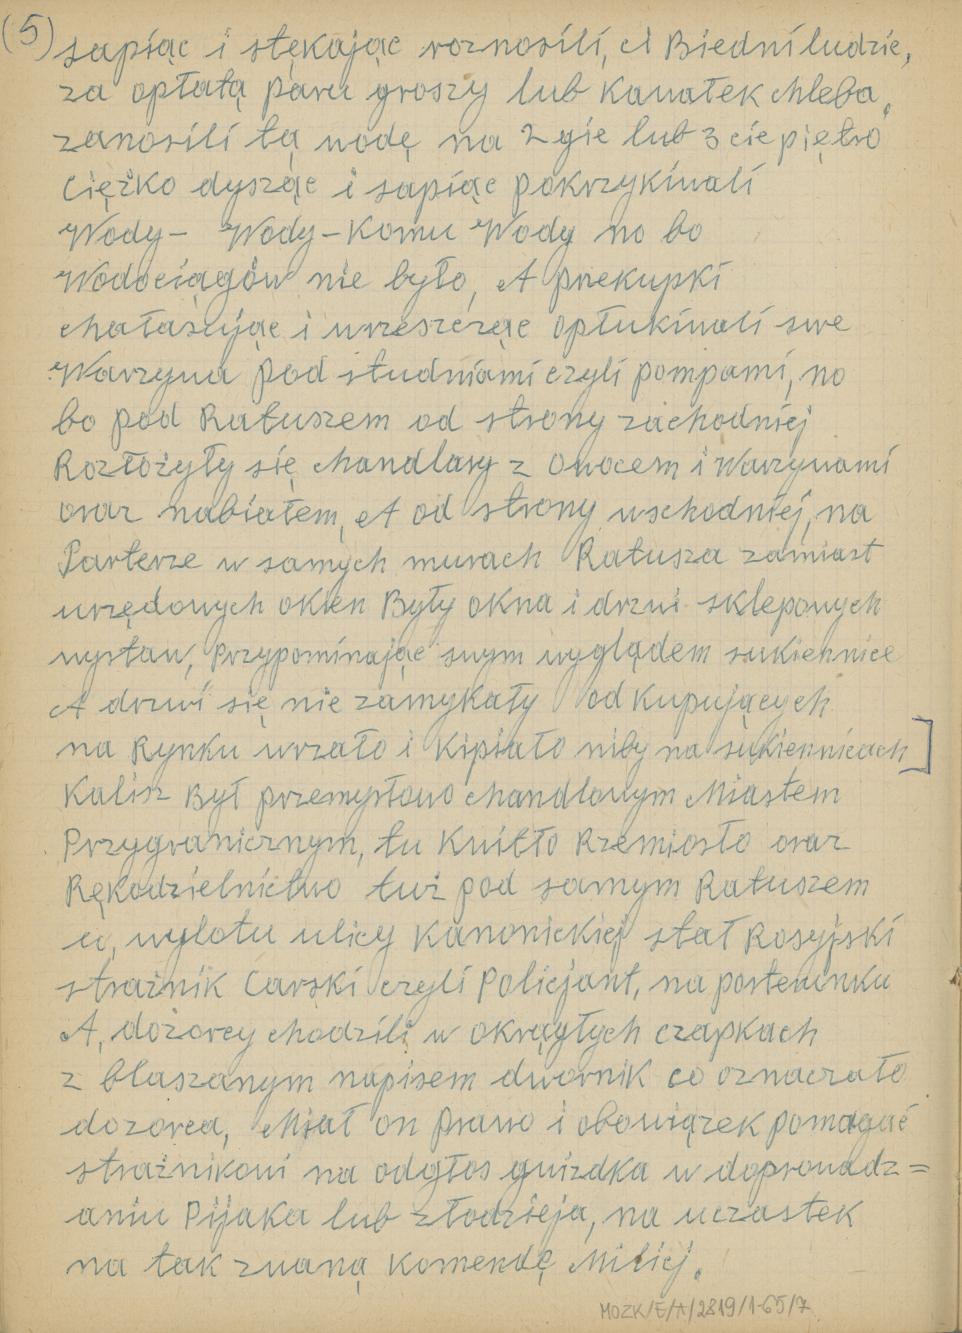 (5) sapiąc i stękając roznosili, ci Biedni ludzie,
za opłatą paru groszy lub Kawałek chleba,
zanosili tą wodę na 2gie lub 3cie piętro
Ciężko dysząc i sapiąc pokrzykiwali
Wody - Wody - Komu Wody no bo
Wodociągów nie było, A przekupki
chałasując i wrzeszcząc opłukiwali swe
Warzywa pod studniami czyli pompami, no
bo pod Ratuszem od strony zachodniej
Rozłożyły się chandlary z Owocem i Warzywami
oraz nabiałem, A od strony wschodniej, na
Parterze w samych murach Ratusza zamiast
urzędowych okien Były okna i drzwi sklepowych
wystaw, Przypominając swym wyglądem sukiennice
A drzwi się nie zamykały od kupujących
na Rynku wrzało i Kipiało niby na sukiennicach]
Kalisz Był przemysłowo chandlowym Miastem
Przygranicznym, tu Kwitło Rzemiosło oraz
Rękodzielnictwo tuż pod samym Ratuszem
u, wylotu ulicy Kanonickiej stał Rosyjski
strażnik Carski czyli Policjant, na posterunku
A, dozorcy chodzili w okrągłych czapkach
z blaszanym napisem dwornik co oznaczało
dozorca, Miał on prawo i obowiązek pomagać
strażnikowi na odgłos gwizdka w doprowadz=
aniu Pijaka lub złodzieja, na uczastek
na tak zwaną Komendę Milicj.
MOZK/E/A/2819/1-65/7